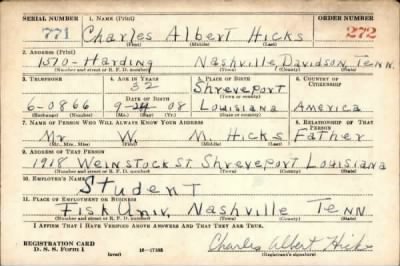 SERIAL NUMBER 1. NAME (Print) ORDER NUMBER
771 Charles Albert Hicks 272
(First) (Middle) (Last)
2. ADDRESS (Print)
1570-Harding Nashville, Davidson Tenn.
(Number and street or R. F. D. number) (Town) (County) (State)
3. TELEPHONE 4. AGE IN YEARS 5. PLACE OF BIRTH 6. COUNTRY OF CITIZENSHIP
32 Shreveport
DATE OF BIRTH (Town or county)
6-0866 9-24 08 Louisiana America
(Exchange) (Number) (Mo.) (Day) (Yr.) (State or country)
7. NAME OF PERSON WHO WILL ALWAYS KNOW YOUR ADDRESS 8. RELATIONSHIP OF THAT PERSON
Mr W. M. Hicks Father
(Mr., Mrs., Miss) (First) (Middle) (Last)
9. ADDRESS OF THAT PERSON
1918 Weinstock St. Shreveport Louisiana
(Number and street or R. F. D. number) (Town) (County) (State)
10. EMPLOYER'S NAME
Student
11. PLACE OF EMPLOYMENT OR BUSINESS
Fisk Univ. Nashville Tenn
(Number and street or R. F. D. number) (Town) (County) (State)
I AFFIRM THAT I HAVE VERIFIED ABOVE ANSWERS AND THAT THEY ARE TRUE.
REGISTRATION CARD
D. S. S. Form 1 (over) 16-17105 Charles Albert Hicks
(Registrant's signature)